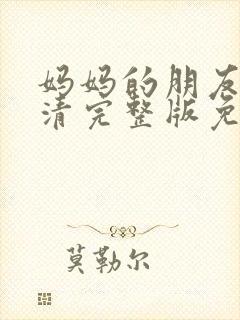 妈妈的朋友
清完整版免
莫勒尔